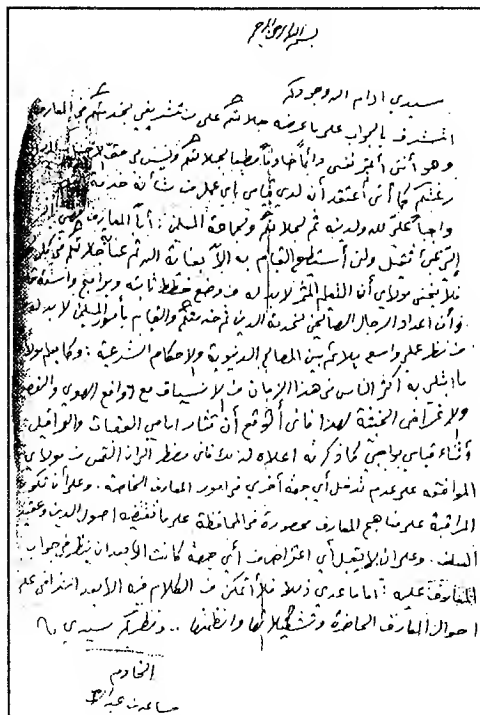 بسم الله الرحمن الرحيم
سيدي ادام الله وجودكم
اتشرف بالجواب على ما عرضه جلالتكم علي من تشريفي بخدمتكم في المعارف
وهو أنني أعتبر نفسي دائماً خادماً مطيعاً لجلالتكم وليس لي حق
رغبتكم كما أنني أعتقد أن لدي قيامي بأي عمل من شأنه خدمة
واجباً عليَّ لله ولدينه ثم لجلالتكم ولجماعة المسلمين: أما المعارف
التي عمل ثقيل ولن أستطيع القيام به الا بعناية الله ثم عناية جلالتكم في كل
فلا يخفى مولاي أن التعليم المثمر لا بد له من وضع خطط ثابته وبرامج واسعة
وأن اعداد الرجال الصالحين لخدمة الدين ثم خدمتكم والقيام بأمور المسلمين لا بد له
من نظر علمي واسع يلائم بين المصالح الدنيوية والاحكام الشرعية: وكما يعلم مولاي
ما ابتلي به أكثر الناس في هذا الزمان من الانسياق مع دوافع الهوى
والاغراض الخبيثة لهذا فانني أتوقع أن تثار امامي العقبات والعراقيل
أثناء قيامي بواجبي كما ذكرته اعلاه لذلك فاني مضطر الى ان التمس من مولاي
الموافقه على عدم تدخل أي جهة أخرى في امور المعارف الخاصة. وعلى أن تكون
المراقبة على مناهج المعارف محصورة في المحافظة على ما تقتضيه اصول الدين وعقيدة
السلف. وعلى ان لا يقبل أي اعتراض من أي جهة كانت الا بعد ان ينظر في جواب
المعارف عليه: أما ما عدى ذلك فلا أتمكن من الكلام فيه الا بعد اشرافي على
احوال المعارف الحاضرة وتشكيلاتها وانظمتها .. ونظركم سيدي
الخادم
مساعد بن عبدالرحمن